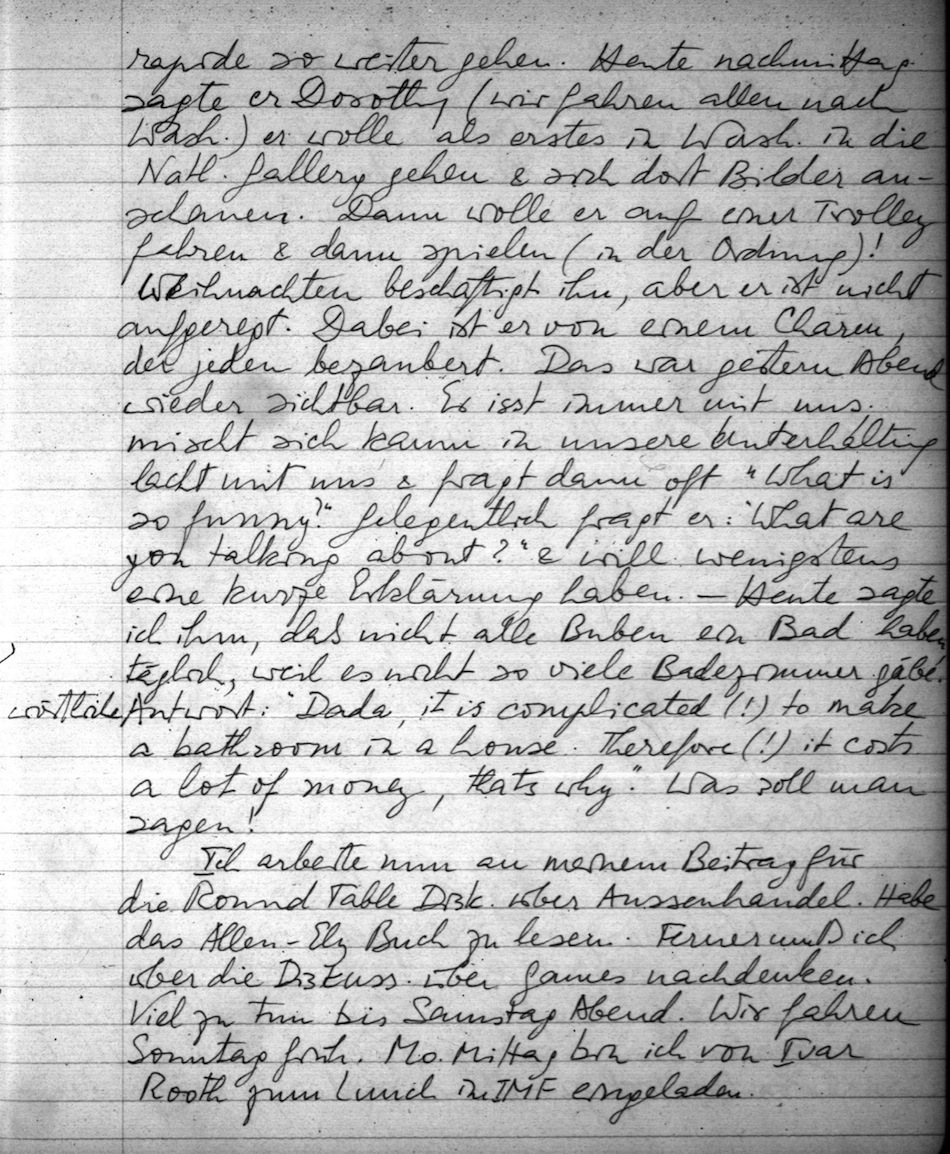 rapide so weiter gehen. Heute nachmittag
sagte er Dorothy (wir fahren allen nach
Wash.) er wolle als erstes in Wash. in die
Natl. Gallery gehen & sich dort Bilder an-
schauen. Dann wolle er auf einer Trolley
fahren & dann spielen (in der Ordnung)!
Weihnachten beschäftigt ihn, aber er ist nicht
aufgeregt. Dabei ist er von einem Charm,
der jeden bezaubert. Das war gestern Abend
wieder sichtbar. Er isst immer mit uns.
mischt sich kaum in unsere Unterhaltung
lacht mit uns & fragt dann oft "What is
so funny?" Gelegentlich fragt er: "What are
you talking about?" & will wenigstens
eine kurze Erklärung haben. — Heute sagte
ich ihm, daß nicht alle Buben ein Bad haben
täglich, weil es nicht so viele Badezimmer gäbe.
wörtliche Antwort: "Dada, it is complicated (!) to make
a bathroom in a house. Therefore (!) it costs
a lot of money, thats why". Was soll man
sagen!
Ich arbeite nun an meinem Beitrag für
die Round Table Disk. über Aussenhandel. Habe
das Allen-Ely Buch zu lesen. Ferner muß ich
über die Diskuss. über Games nachdenken.
Viel zu tun bis Samstag Abend. Wir fahren
Sonntag früh. Mo. Mittag bin ich von Ivar
Rooth zum Lunch in IMF eingeladen.